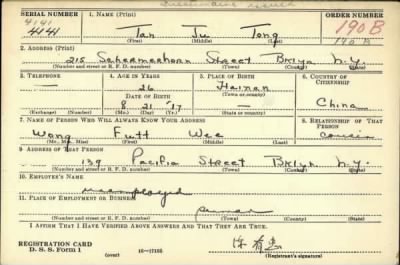 Questionnaire issued
SERIAL NUMBER 1. NAME (Print) ORDER NUMBER
4141
4141 Tan Ju Tong 190B
(First) (Middle) (Last) 190 B
2. ADDRESS (Print)
215 Schermerhorn Street Bklyn N.Y.
(Number and street or R. F. D. number) (Town) (County) (State)
3. TELEPHONE 4. AGE IN YEARS 5. PLACE OF BIRTH 6. COUNTRY OF CITIZENSHIP
— 26 Hainan
DATE OF BIRTH (Town or county) China
8 21 '17 —
(Exchange) (Number) (Mo.) (Day) (Yr.) (State or country)
7. NAME OF PERSON WHO WILL ALWAYS KNOW YOUR ADDRESS 8. RELATIONSHIP OF THAT PERSON
Wong Futt Wee cousin
(Mr., Mrs., Miss) (First) (Middle) (Last)
9. ADDRESS OF THAT PERSON
139 Pacific Street Bklyn N.Y.
(Number and street or R. F. D. number) (Town) (County) (State)
10. EMPLOYER'S NAME
unemployed
11. PLACE OF EMPLOYMENT OR BUSINESS
(Number and street or R. F. D. number) (Town) (County) (State)
I AFFIRM THAT I HAVE VERIFIED ABOVE ANSWERS AND THAT THEY ARE TRUE.
REGISTRATION CARD
D. S. S. Form 1 16—17105
(over) (Registrant's signature)